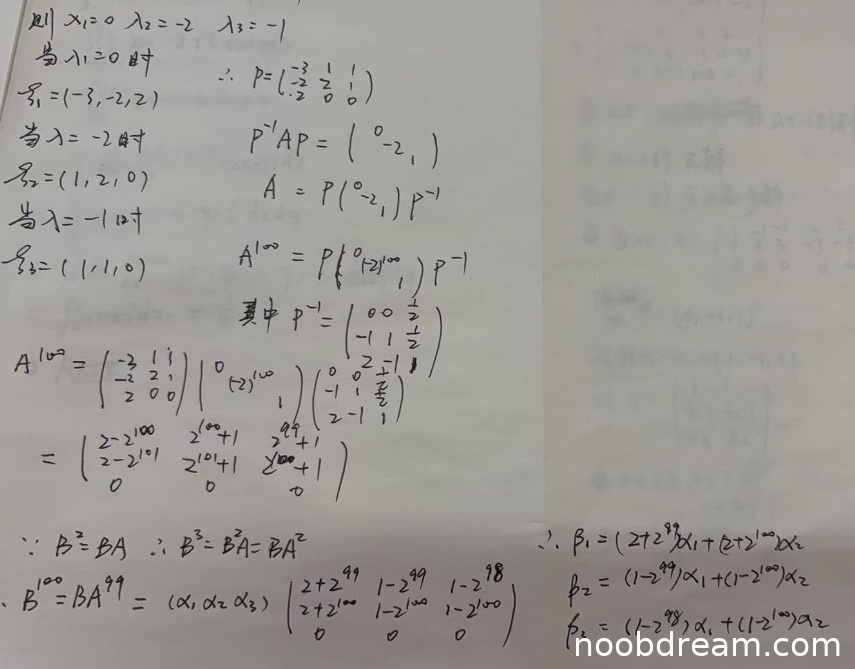 则 x₁=0 λ₂=-2 λ₃=-1
当 λ₁=0 时
ξ₁=(-3,-2,2)
当 λ=-2 时
ξ₂=(1,2,0)
当 λ=-1 时
ξ₃=(1,1,0)
∴ P=(-3 1 1
-2 2 1
-2 0 0)
P⁻¹AP = (0 -2 1)
A = P(0 -2 1)P⁻¹
A¹⁰⁰ = P(0 (-2)¹⁰⁰ 1)P⁻¹
其中 P⁻¹ = (0 0 1/2
-1 1 1/2
2 -1 1)
A¹⁰⁰ = (-3 1 1
-2 2 1
2 0 0) (0 (-2)¹⁰⁰ 1) (0 0 1/2
-1 1 1/2
2 -1 1)
= (2-2¹⁰⁰ 2¹⁰⁰+1 2⁹⁹+1
2-2¹⁰¹ 2¹⁰¹+1 2¹⁰⁰+1
0 0 0)
∵ B²=BA ∴ B³=B²A=BA²
B¹⁰⁰=BA⁹⁹ = (α₁ α₂ α₃) (2+2⁹⁹ 1-2⁹⁹ 1-2⁹⁸
2+2¹⁰⁰ 1-2¹⁰⁰ 1-2¹⁰⁰
0 0 0)
∴ β₁=(2+2⁹⁹)α₁+(2+2¹⁰⁰)α₂
β₂=(1-2⁹⁹)α₁+(1-2¹⁰⁰)α₂
β₂=(1-2⁹⁸)α₁+(1-2¹⁰⁰)α₂
noobdream.com